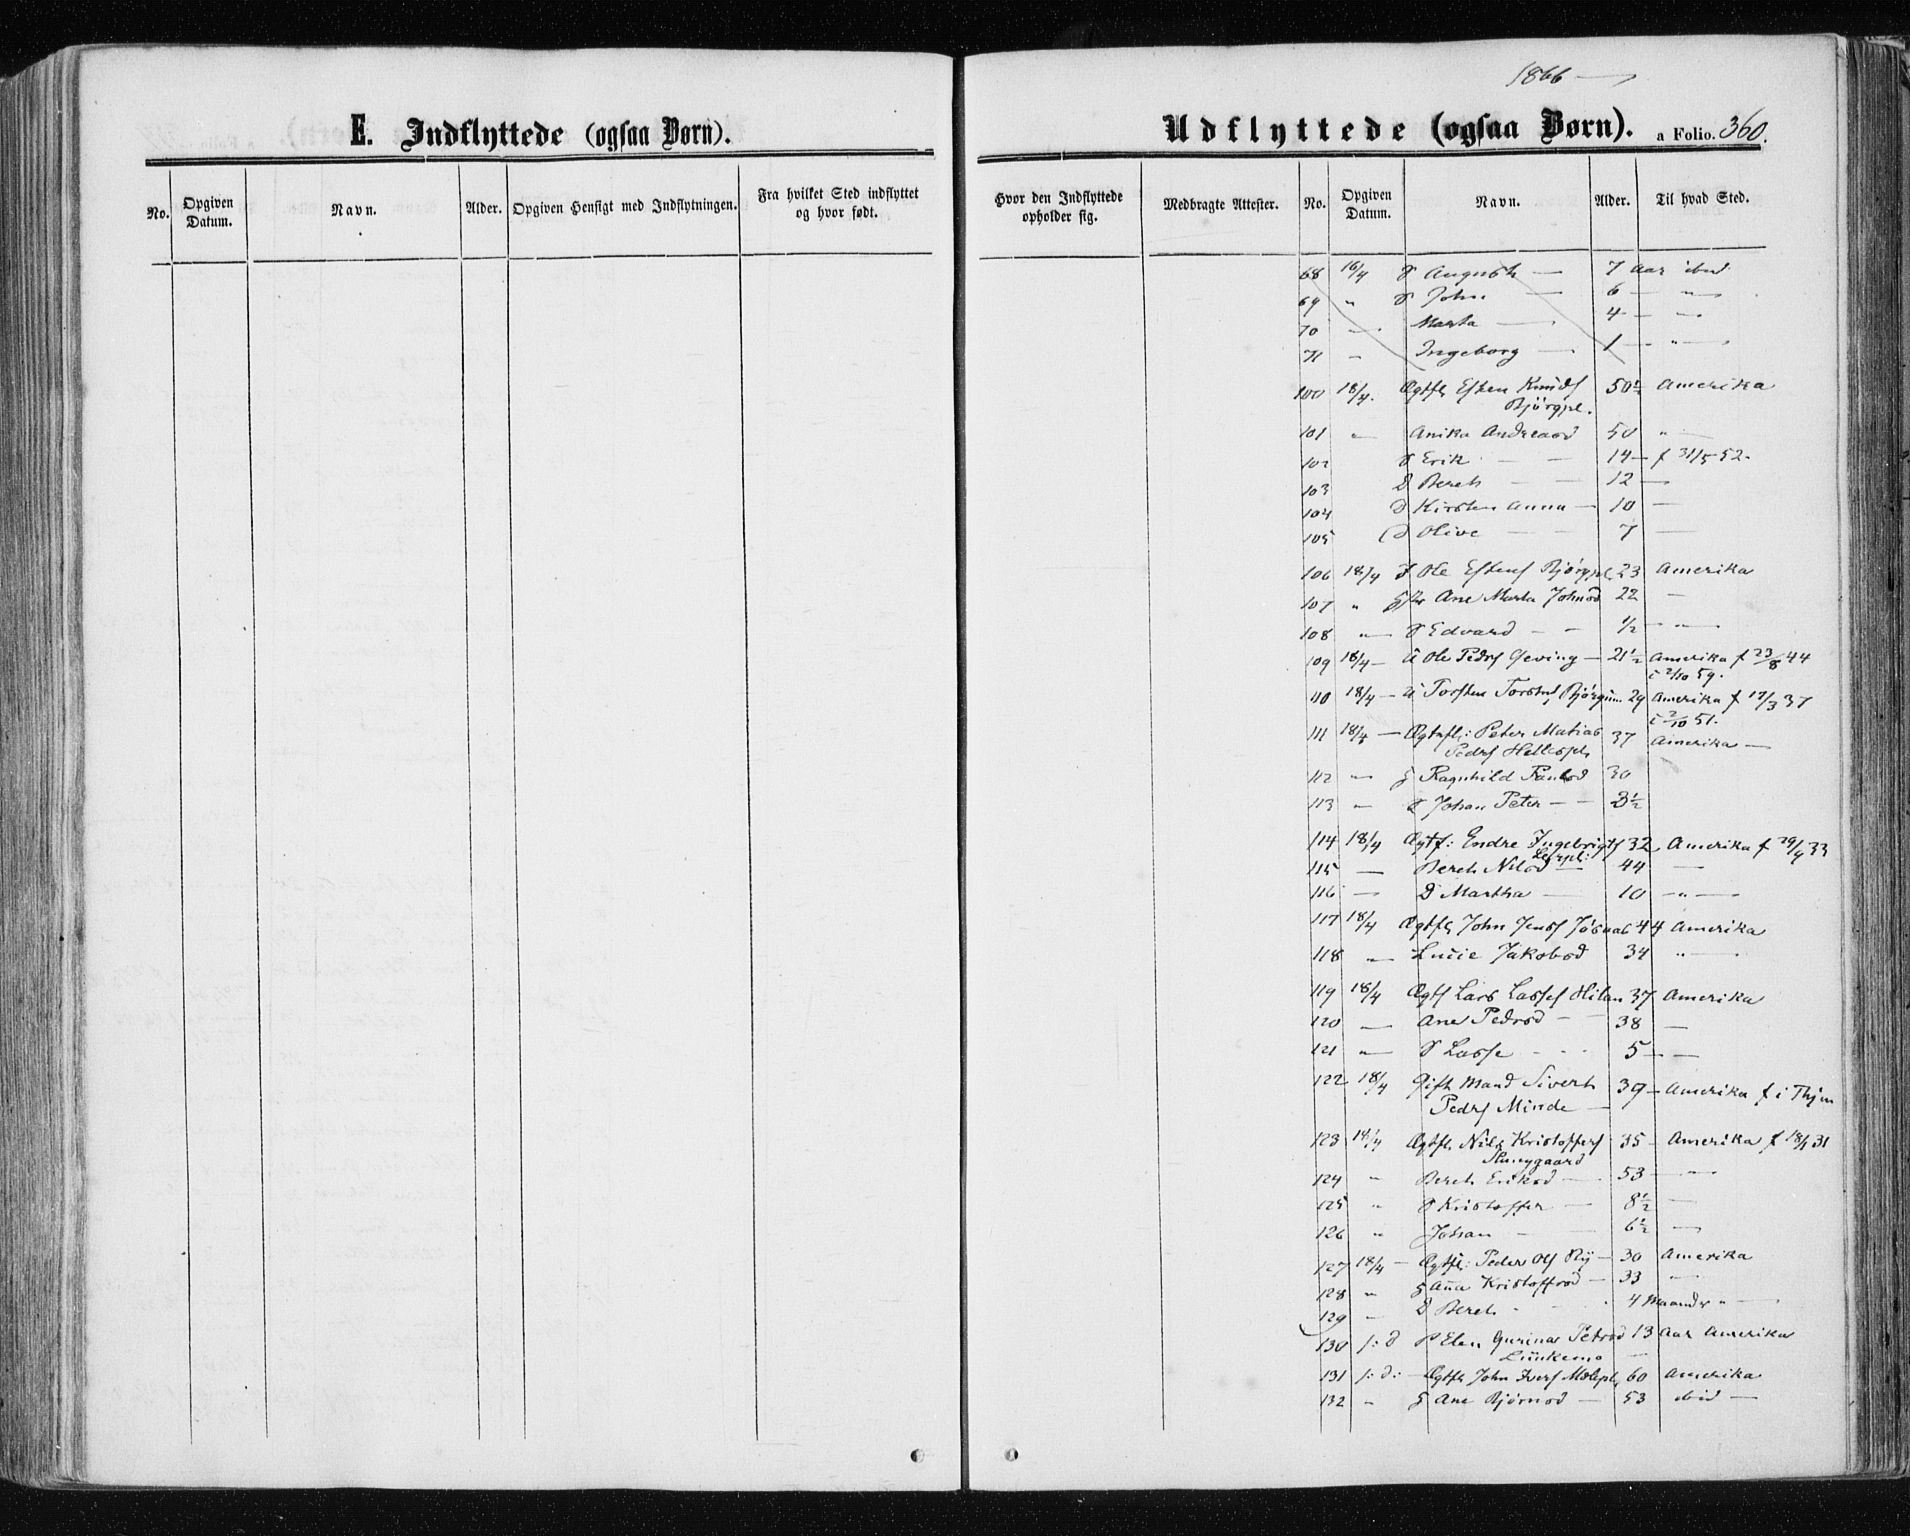 1866 —
E. Indflyttede (ogsaa Børn).
Udflyttede (ogsaa Børn). a Folio. 360.
No. Opgiven Datum. Navn. Alder. Opgiven Hensigt med Indflytningen. Fra hvilket Sted indflyttet og hvor født.
Hvor den Indflyttede opholder sig. Medbragte Attester. No. Opgiven Datum. Navn. Alder. Til hvad Sted.
68 16/4 S August — 7 Aar ibid
69 " S John — 6 — "
70 — Marta — 4 — "
71 — Ingeborg — 1 — "
100 18/4. Ægtfl Esten Knuds 50½ Amerika
Bjørgpl.
101 " Anika Andreasd 50 "
102 S Erik — — 14 — f 31/5 52.
103 D Bereth — — 12 —
104 D Kirsten Anna — 10 —
105 D Olive — — 7 —
106 18/4 I Ole Estens Bjørgpl 23 Amerika
107 " Ane Marta Johnsd 22 —
108 " S Edvard — — ½ — "
109 18/4 — U Ole Peders Geving — 21½ Amerika f 23/8 44
c 2/10 59.
110 18/4 — U Torsten Torstens Bjørgum 29 Amerika f 17/3 37
c 2/10 51.
111 18/4 — Ægtefl: Peter Matias 37 Amerika —
Peders Hellespl
112 — G Ragnhild Paulsd 30
113 — S Johan Peter — — 3½
114 18/4 Ægtf: Endre Ingebrigts 32 Amerika f 29/9 33
115 — Bereth Nilsd — 44 —
116 — D Martha — 10 — " —
117 18/4 Ægtfl John Jens 44 Amerika
118 " Lucie Jakobsd 34 " —
119 18/4 Ægtf Lars Lasses Hilan 37 Amerika
120 — Ane Pedersd — 38 —
121 " S Lasse - - - 5 — —
122 18/4 Gift Mand Sivert 39 — Amerika f i Thjem
Peders Minde —
123 18/4 Ægtfl. Nils Kristoffers 35 — Amerika f 18/1 31
124 " Bereth Eriksd — 53 — "
125 " S Kristoffer — 8½ —
126 " Johan — 6½ —
127 18/4 — Ægtfl: Peder Ols Ry — 30 Amerika
128 " G Anna Kristoffersd — 33 "
129 — D Bereth - 4 Maaneder " —
130 /: d Elen Gurina Petersd 13 Aar Amerika
131 /: d: — Ægtfl John Ivers 60 Amerika
132 " G Ane Bjørnsd — 53 ibid —